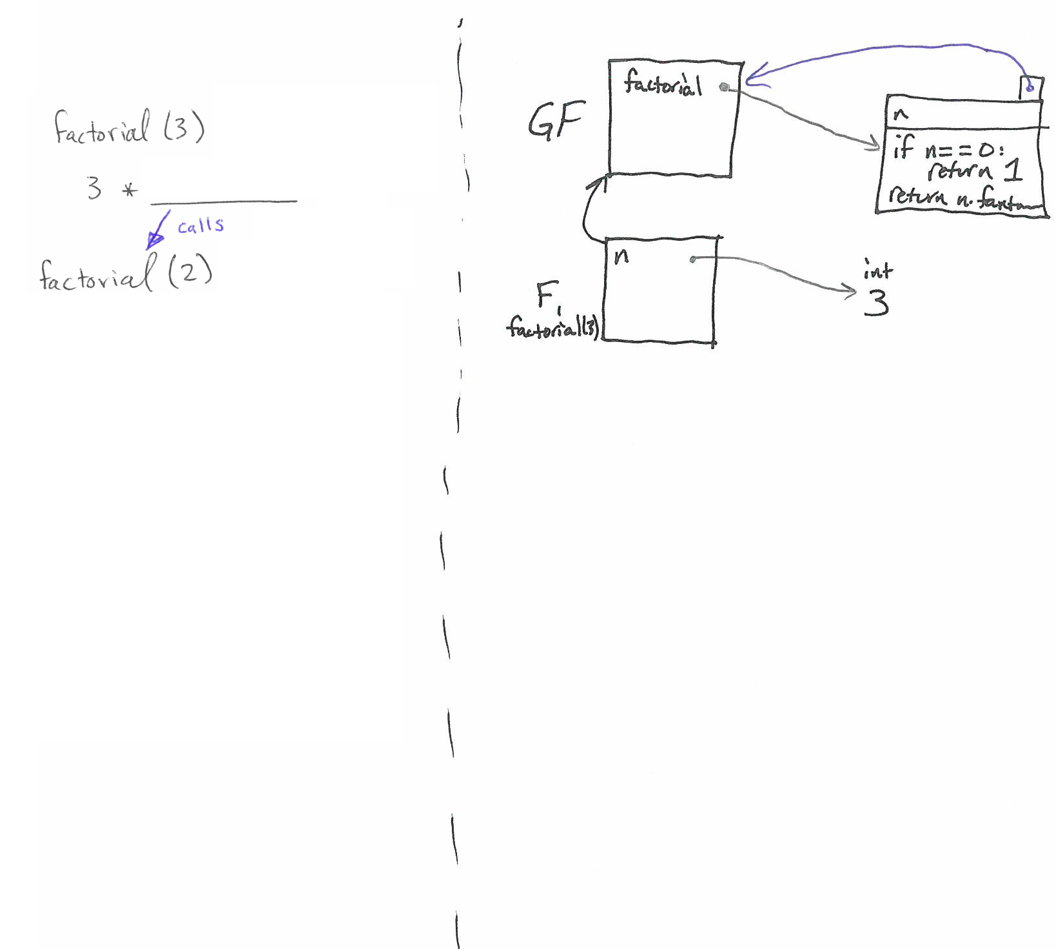 factorial (3)
3 *
calls
factorial (2)
GF
factorial
n
if n==0:
return 1
return n.
F1
factorial(3)
n
int
3